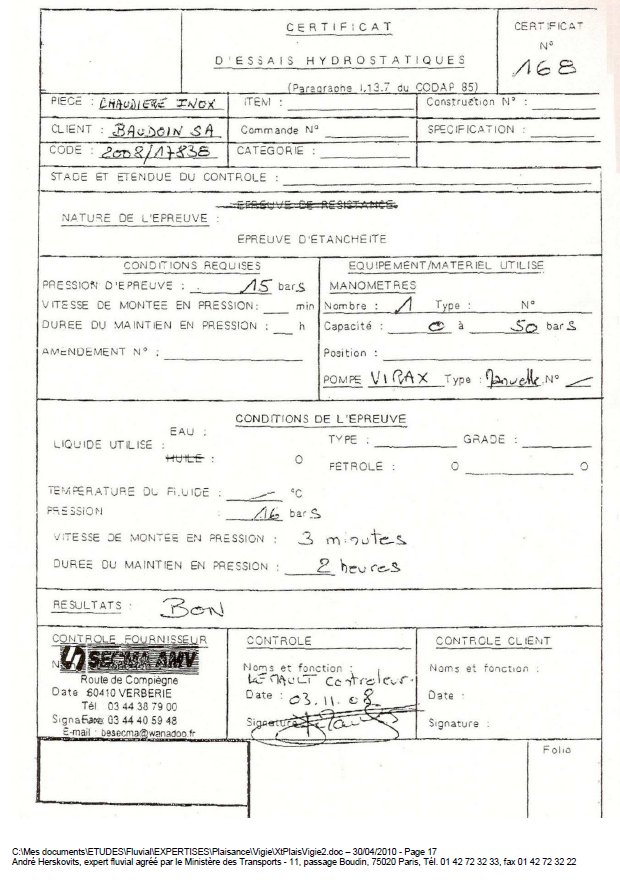 CERTIFICAT
D'ESSAIS HYDROSTATIQUES
(Paragraphe I.13.7 du CODAP 85)
CERTIFICAT
N°
168
PIECE : CHAUDIERE INOX
ITEM :
Construction N° :
CLIENT : BAUDOIN SA
Commande N°
SPECIFICATION :
CODE : 2008/17838
CATEGORIE :
STADE ET ETENDUE DU CONTROLE :
EPREUVE DE RESISTANCE.
NATURE DE L'EPREUVE :
EPREUVE D'ETANCHEITE
CONDITIONS REQUISES
PRESSION D'EPREUVE : 15 bars
VITESSE DE MONTEE EN PRESSION: min
DUREE DU MAINTIEN EN PRESSION : h
AMENDEMENT N° :
EQUIPEMENT/MATERIEL UTILISE
MANOMETRES
Nombre : 1 Type : N°
Capacité : 0 à 50 bars
Position :
POMPE VIRAX Type : Manuelle N° —
CONDITIONS DE L'EPREUVE
EAU :
LIQUIDE UTILISE :
TYPE : GRADE :
HUILE : O
PETROLE : O O
TEMPERATURE DU FLUIDE : — °C
PRESSION : 16 bars
VITESSE DE MONTEE EN PRESSION : 3 minutes
DUREE DU MAINTIEN EN PRESSION : 2 heures
RESULTATS : BON
CONTROLE FOURNISSEUR
SECMA AMV
Route de Compiègne
Date 60410 VERBERIE
Tél. 03 44 38 79 00
Fax: 03 44 40 59 48
E-mail : besecma@wanadoo.fr
CONTROLE
Noms et fonction :
controleur.
Date : 03.11.08
Signature
CONTROLE CLIENT
Noms et fonction :
Date :
Signature :
Folio
C:\Mes documents\ETUDES\Fluvial\EXPERTISES\Plaisance\Vigie\XtPlaisVigie2.doc – 30/04/2010 - Page 17
André Herskovits, expert fluvial agréé par le Ministère des Transports - 11, passage Boudin, 75020 Paris, Tél. 01 42 72 32 33, fax 01 42 72 32 22